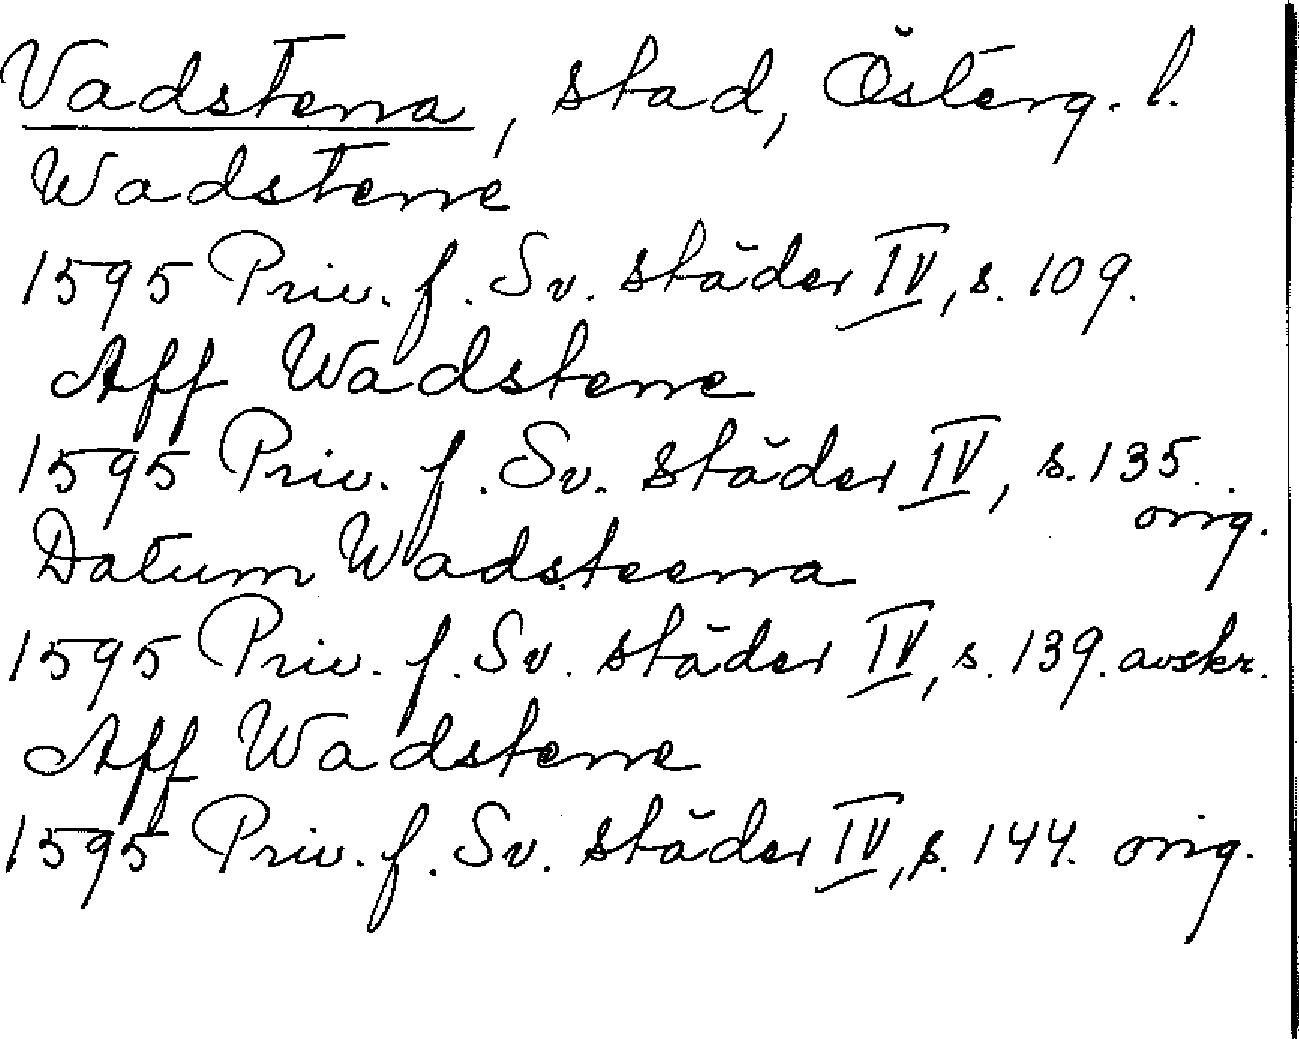 Vadstena, stad, Österg. l.
Wadstene
1595 Priv. f. Sv. städer IV, s. 109.
Aff Wadstene
1595 Priv. f. Sv. städer IV, s. 135.
orig.
Datum Wadsteena
1595 Priv. f. Sv. städer IV, s. 139. avskr.
Aff Wadstene
1595 Priv. f. Sv. städer IV, s. 144. orig.